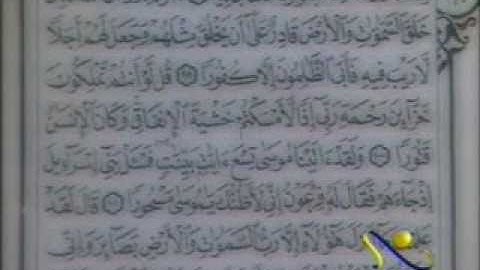 خَلَقَ ٱلسَّمَٰوَٰتِ وَٱلْأَرْضَ قَادِرٌ عَلَىٰٓ أَن يَخْلُقَ مِثْلَهُمْ وَجَعَلَ لَهُمْ أَجَلًا
لَّا رَيْبَ فِيهِ فَأَبَى ٱلظَّٰلِمُونَ إِلَّا كُفُورًا ۝٩٩ قُل لَّوْ أَنتُمْ تَمْلِكُونَ
خَزَآئِنَ رَحْمَةِ رَبِّىٓ إِذًا لَّأَمْسَكْتُمْ خَشْيَةَ ٱلْإِنفَاقِ وَكَانَ ٱلْإِنسَٰنُ
قَتُورًا ۝١٠٠ وَلَقَدْ ءَاتَيْنَا مُوسَىٰ تِسْعَ ءَايَٰتٍۭ بَيِّنَٰتٍ فَسْـَٔلْ بَنِىٓ إِسْرَٰٓءِيلَ
إِذْ جَآءَهُمْ فَقَالَ لَهُۥ فِرْعَوْنُ إِنِّى لَأَظُنُّكَ يَٰمُوسَىٰ مَسْحُورًا ۝١٠١ قَالَ لَقَدْ
هَٰٓؤُلَآءِ إِلَّا رَبُّ ٱلسَّمَٰوَٰتِ وَٱلْأَرْضِ بَصَآئِرَ وَإِنِّى